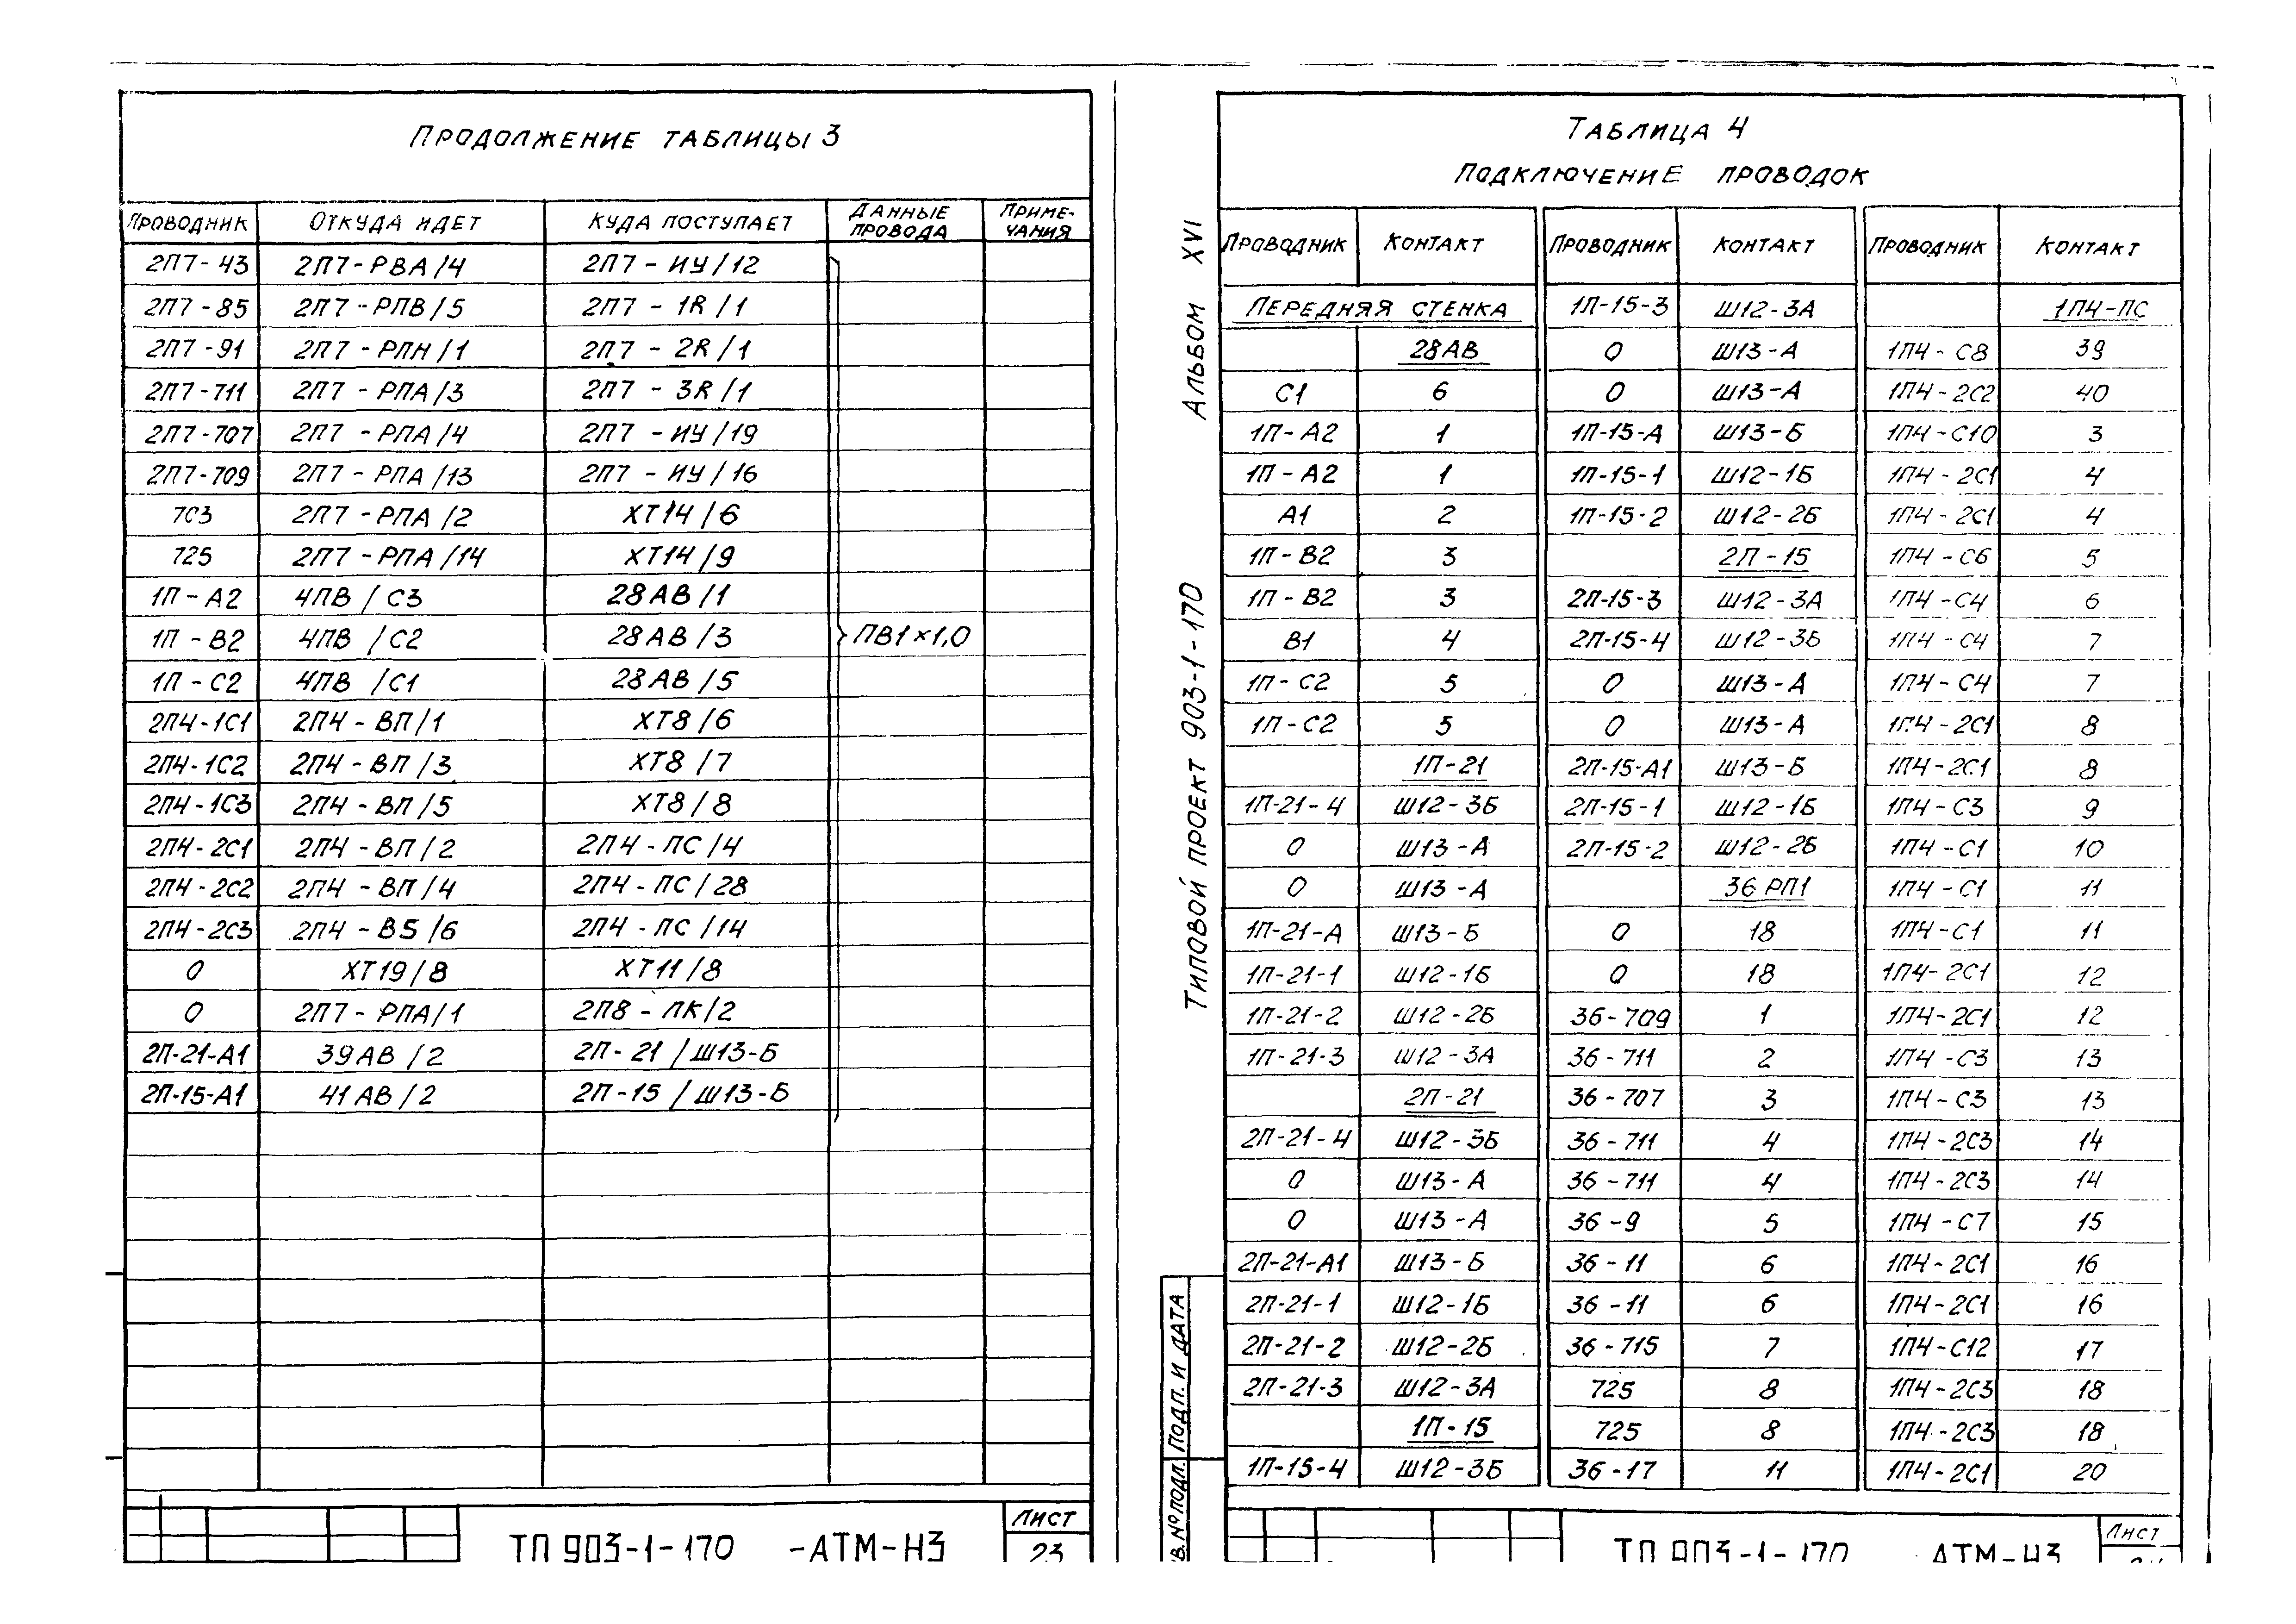 Продолжение таблицы 3
Проводник Откуда идет Куда поступает Данные провода Приме-чания
2П7-43 2П7-РВА/4 2П7-ИУ/12
2П7-85 2П7-РПВ/5 2П7-1R/1
2П7-91 2П7-РПН/1 2П7-2R/1
2П7-711 2П7-РПА/3 2П7-3R/1
2П7-707 2П7-РПА/4 2П7-ИУ/19
2П7-709 2П7-РПА/13 2П7-ИУ/16
7С3 2П7-РПА/2 ХТ14/6
725 2П7-РПА/14 ХТ14/9
1П-А2 4ПВ/С3 28АВ/1
1П-В2 4ПВ/С2 28АВ/3 ПВ1×1,0
1П-С2 4ПВ/С1 28АВ/5
2П4-1С1 2П4-ВП/1 ХТ8/6
2П4-1С2 2П4-ВП/3 ХТ8/7
2П4-1С3 2П4-ВП/5 ХТ8/8
2П4-2С1 2П4-ВП/2 2П4-ПС/4
2П4-2С2 2П4-ВП/4 2П4-ПС/28
2П4-2С3 2П4-В5/6 2П4-ПС/14
0 ХТ19/8 ХТ11/8
0 2П7-РПА/1 2П8-ПК/2
2П-21-А1 39АВ/2 2П-21/Ш13-Б
2П-15-А1 41АВ/2 2П-15/Ш13-Б
ТП 903-1-170 -АТМ-Н3
Лист
23
Типовой проект 903-1-170 Альбом XVI
Подп. и дата
Таблица 4
Подключение проводок
Проводник Контакт Проводник Контакт Проводник Контакт
Передняя стенка 1П-15-3 Ш12-3А 1П4-ПС
28АВ 0 Ш13-А 1П4-С8 39
С1 6 0 Ш13-А 1П4-2С2 40
1П-А2 1 1П-15-А Ш13-Б 1П4-С10 3
1П-А2 1 1П-15-1 Ш12-1Б 1П4-2С1 4
А1 2 1П-15-2 Ш12-2Б 1П4-2С1 4
1П-В2 3 2П-15 1П4-С6 5
1П-В2 3 2П-15-3 Ш12-3А 1П4-С4 6
В1 4 2П-15-4 Ш12-3Б 1П4-С4 7
1П-С2 5 0 Ш13-А 1П4-С4 7
1П-С2 5 0 Ш13-А 1П4-2С1 8
1П-21 2П-15-А1 Ш13-Б 1П4-2С1 8
1П-21-4 Ш12-3Б 2П-15-1 Ш12-1Б 1П4-С3 9
0 Ш13-А 2П-15-2 Ш12-2Б 1П4-С1 10
0 Ш13-А 36 РП1 1П4-С1 11
1П-21-А Ш13-Б 0 18 1П4-С1 11
1П-21-1 Ш12-1Б 0 18 1П4-2С1 12
1П-21-2 Ш12-2Б 36-709 1 1П4-2С1 12
1П-21-3 Ш12-3А 36-711 2 1П4-С3 13
2П-21 36-707 3 1П4-С3 13
2П-21-4 Ш12-3Б 36-711 4 1П4-2С3 14
0 Ш13-А 36-711 4 1П4-2С3 14
0 Ш13-А 36-9 5 1П4-С7 15
2П-21-А1 Ш13-Б 36-11 6 1П4-2С1 16
2П-21-1 Ш12-1Б 36-11 6 1П4-2С1 16
2П-21-2 Ш12-2Б 36-715 7 1П4-С12 17
2П-21-3 Ш12-3А 725 8 1П4-2С3 18
1П-15 725 8 1П4-2С3 18
1П-15-4 Ш12-3Б 36-17 11 1П4-2С1 20
ТП 903-1-170 АТМ-Н3
Лист